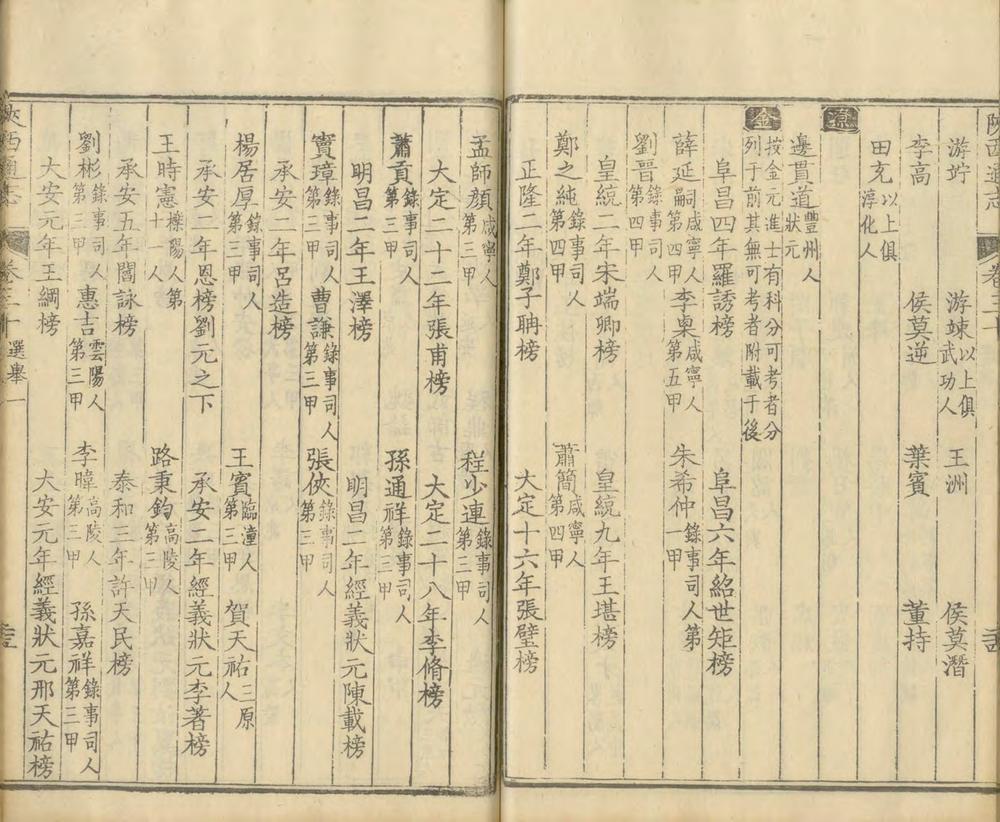 陝西通志 卷三十
游竚 游竦以上俱武功人 王洲 侯莫潛
李高 侯莫逆 葉賓 董持
田克以上俱淳化人
遼
邊貫道豐州人狀元
金
按金元進士有科分可考者分列于前其無可考者附載于後
阜昌四年羅誘榜 阜昌六年紹世矩榜
薛延嗣咸寧人第四甲 李㮚咸寧人第五甲 朱希仲錄事司人第一
劉晉錄事司人第四甲
皇統二年宋端卿榜 皇統九年王堪榜
鄭之純錄事司人第四甲 蕭簡咸寧人第四甲
正隆二年鄭子聃榜 大定十六年張璧榜
孟師顏咸寧人第三甲 程少連錄事司人第三甲
大定二十二年張甫榜 大定二十八年李脩榜
蕭貢錄事司人第三甲 孫通祥錄事司人第三甲
明昌二年王澤榜 明昌二年經義狀元陳載榜
竇璋錄事司人第三甲 曹謙錄事司人第三甲 張俠錄事司人第三甲
承安二年呂造榜
楊居厚錄事司人第三甲 王賓臨潼人第三甲 賀天祐三原人
承安二年恩榜劉元之下 承安二年經義狀元李著榜
王時憲櫟陽人第十一人 路秉鈞高陵人第三甲
承安五年閻詠榜 泰和三年許天民榜
劉彬錄事司人第三甲 惠吉雲陽人第三甲 李暐高陵人第三甲 孫嘉祥錄事司人第三甲
大安元年王綱榜 大安元年經義狀元邢天祐榜
陝西通志 卷三十 選舉一